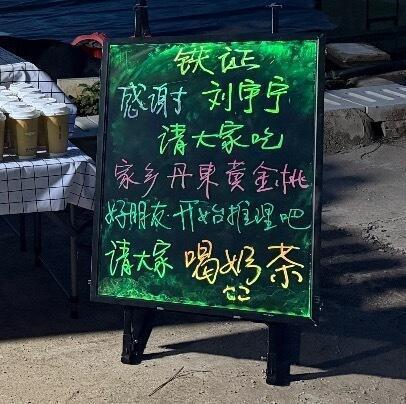 铁证
感谢 刘宇宁
请大家吃
家乡丹東黄金桃
好朋友开始推理吧
请大家 喝奶茶